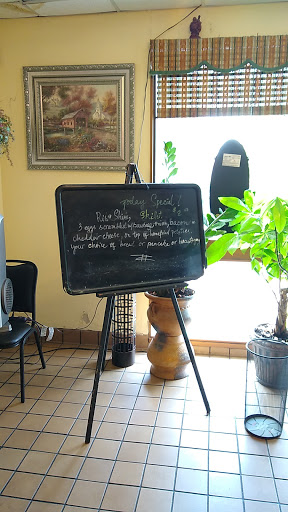 Today Special!
3 eggs scrambled w/ sausage, ham, bacon n
cheddar cheese, on top of homefried potatoes,
your choice of bread or pancake or